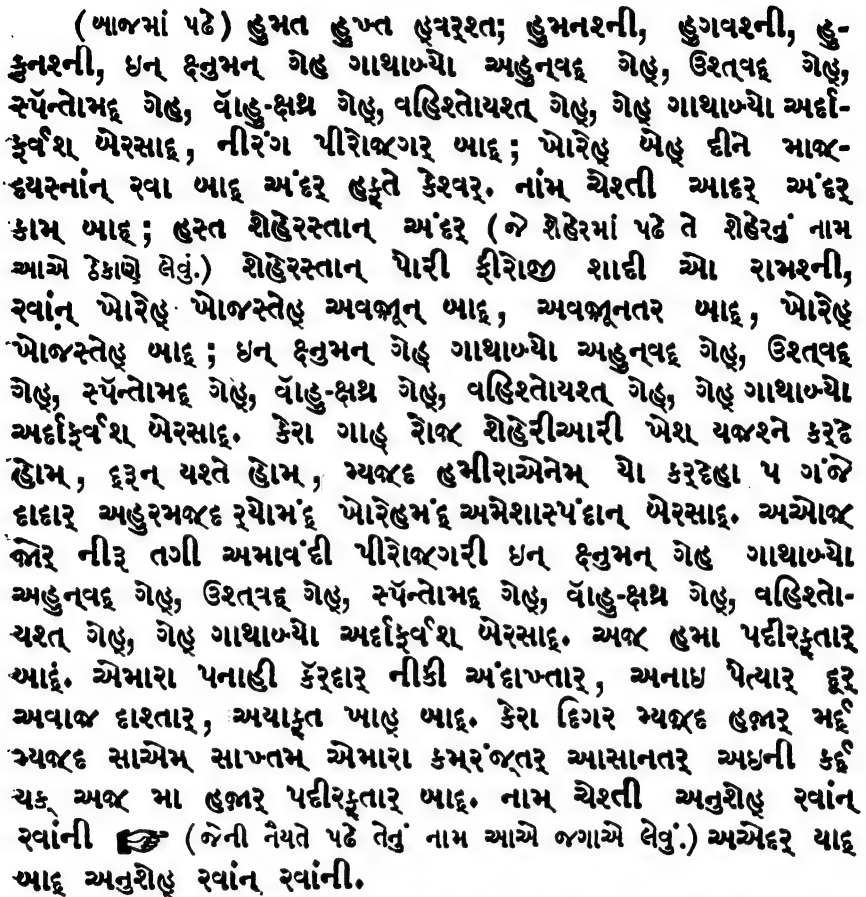 (બાજમાં પઢે) હુમત હુખ્ત હ્વર્શ્ત; હુમનશ્ની, હુગવશ્ની, હુ-
કુનશ્ની, ઇન્ ક્ષ્નુમન્ ગેહ ગાથાબ્યો અહુન્વદ્ ગેહ્, ઉશ્ત્વદ્ ગેહ્,
સ્પૅન્તોમદ્ ગેહ્, વૉહુ-ક્ષથ્ર ગેહ્, વહિશ્તોયશ્ત્ ગેહ્, ગેહ્ ગાથાબ્યો અર્દા-
ફ્રર્વશ્ બેરસાદ્, નીરંગ પીરોજગર્ બાદ્; ખોરેહ્ બેહ્ દીને માજ-
દયસ્નાંન્ રવા બાદ્ અંદર્ હફ્તે કેશ્વર્. નાંમ્ ચેશ્તી આદર્ અંદર્
કામ્ બાદ્; હસ્ત શેહેરસ્તાન્ અંદર્ (જે શેહેરમાં પઢે તે શેહેરનું નામ
આએ ઠેકાણે લેવું.) શેહેરસ્તાન્ પોરી ફીરોજી શાદી ઓ રામશ્ની,
રવાંન્ ખોરેહ્ ખોજસ્તેહ્ અવજૂન્ બાદ્, અવજૂનતર બાદ્, ખોરેહ્
ખોજસ્તેહ્ બાદ્; ઇન્ ક્ષ્નુમન્ ગેહ્ ગાથાબ્યો અહુન્વદ્ ગેહ્, ઉશ્ત્વદ્
ગેહ્, સ્પૅન્તોમદ્ ગેહ્, વૉહુ-ક્ષથ્ર ગેહ્, વહિશ્તોયશ્ત્ ગેહ્, ગેહ્ ગાથાબ્યો
અર્દાફ્રર્વશ્ બેરસાદ્. કેરા ગાહ્ રોજ શેહેરીઆરી ખેશ યજશ્ને કર્દે
હોમ્, દરૂન્ યશ્તે હોમ્, મ્યજ્દ હમીરાએનેમ્ યો કર્દેહા પ ગંજે
દાદાર્ અહુરમજ્દ ર્યોમંદ્ ખોરેહમંદ્ અમેશાસ્પંદાન્ બેરસાદ્. અઓજ
જોર્ નીરૂ તગી અમાવંદી પીરોજગરી ઇન્ ક્ષ્નુમન્ ગેહ ગાથાબ્યો
અહુન્વદ્ ગેહ્, ઉશ્ત્વદ્ ગેહ્, સ્પૅન્તોમદ્ ગેહ્, વૉહુ-ક્ષથ્ર ગેહ્, વહિશ્તો-
યશ્ત્ ગેહ્, ગેહ્ ગાથાબ્યો અર્દાફ્રર્વશ્ બેરસાદ્. અજ હમા પદીરફ્તાર્
બાદ્. એમારા પનાહી કૅર્દાર્ નીકી અંદાખ્તાર્, અનાઇ પેત્યાર્ દૂર્
અવાજ દાશ્તાર્, અયાફ્ત ખાહ્ બાદ્. કેરા દિગર મ્યજ્દ હજાર્ મર્દ્
મ્યજ્દ સાએમ્ સાખ્તમ્ એમારા કમ્રંજ્તર્ આસાનતર્ અઇની કર્દ્
યક્ અજ મા હજાર્ પદીરફ્તાર્ બાદ્. નામ્ ચેશ્તી અનુશેહ્ રવાંન્
રવાંની ☞ (જેની નૈયતે પઢે તેનું નામ આએ જગાએ લેવું.) અએદર્ યાદ્
બાદ્ અનુશેહ્ રવાંન્ રવાંની.